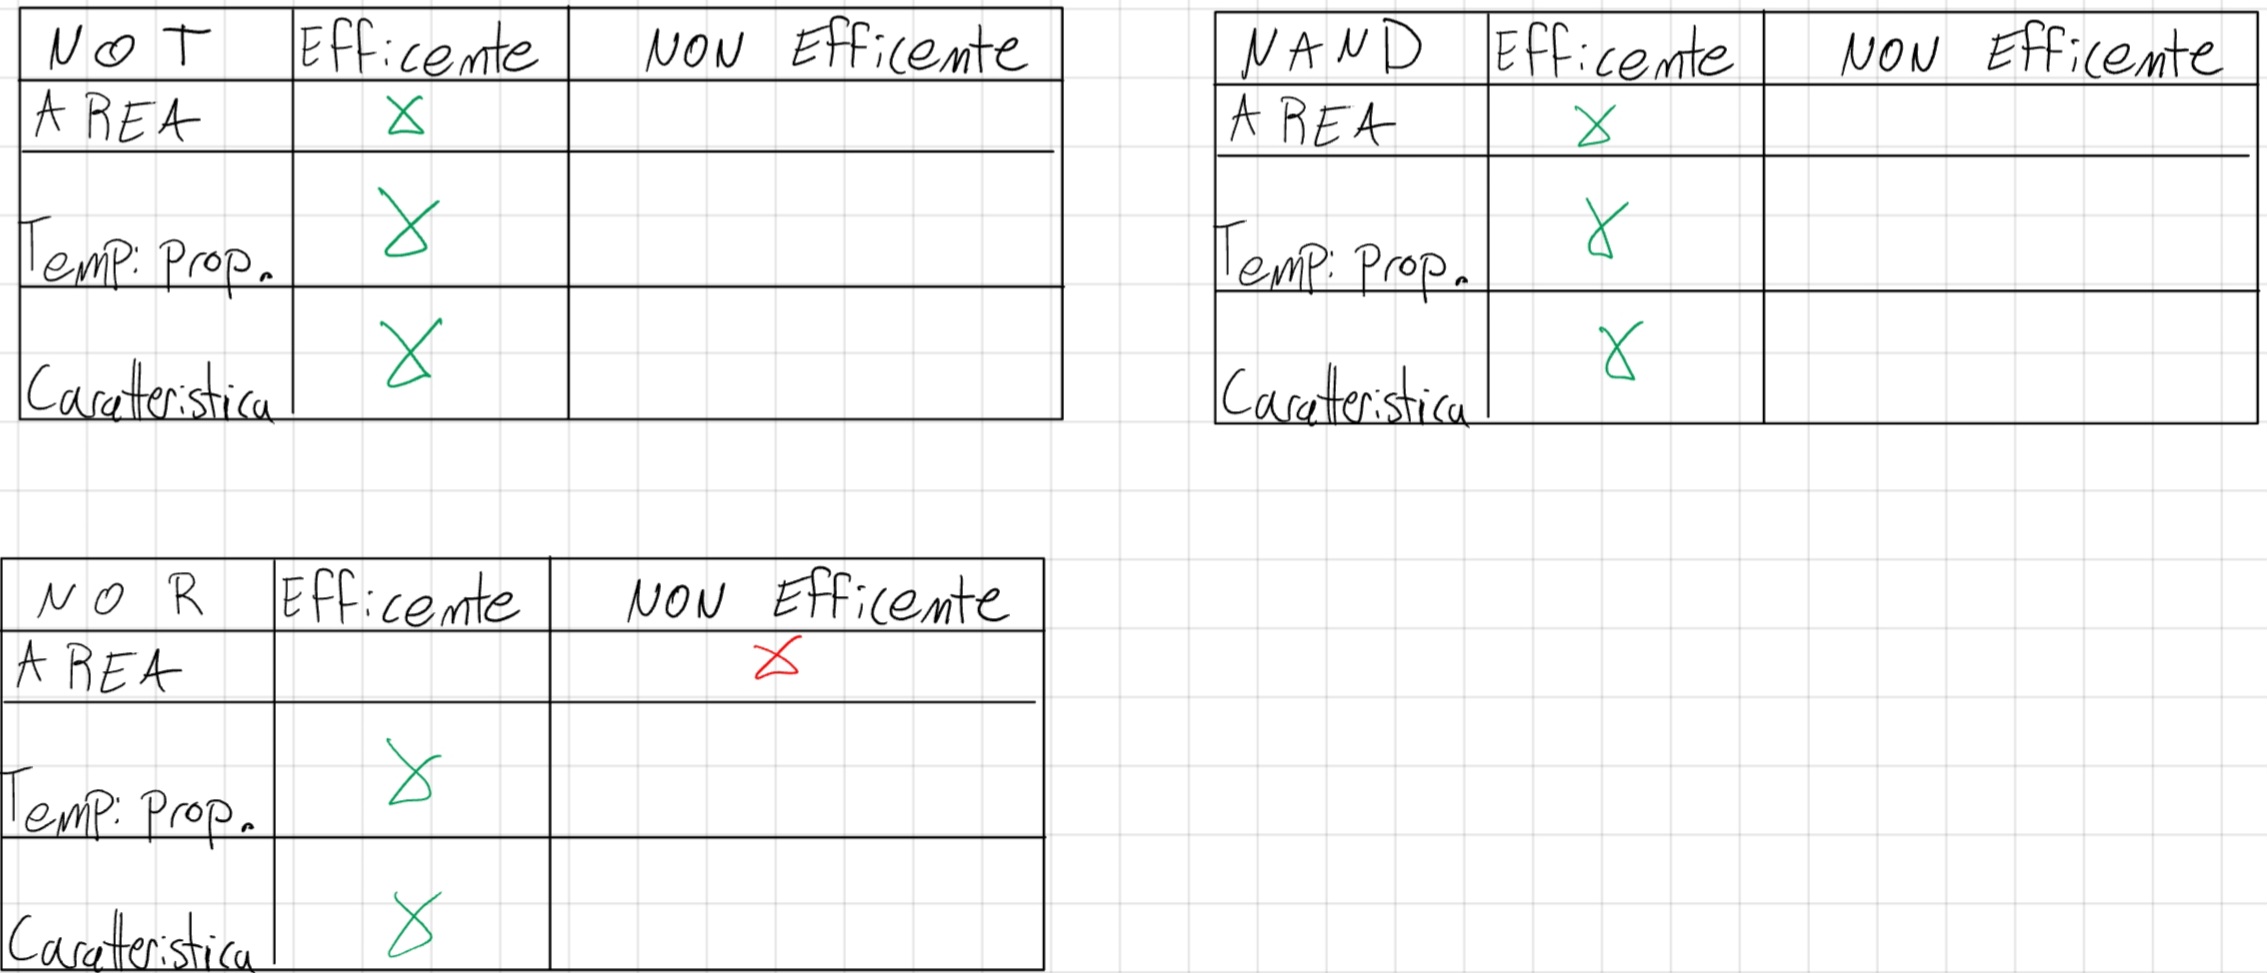 NOT Efficente NON Efficente
AREA
Temp: Prop.
Caratteristica
NAND Efficente NON Efficente
AREA
Temp: Prop.
Caratteristica
NOR Efficente NON Efficente
AREA
Temp: Prop.
Caratteristica